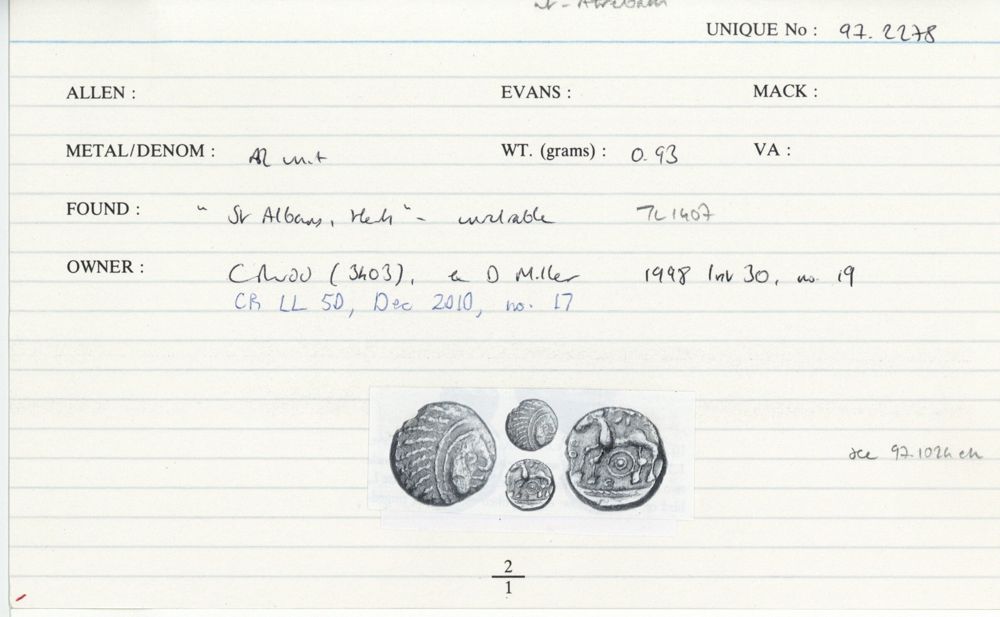 UNIQUE No : 97. 2278
ALLEN : EVANS : MACK :
METAL/DENOM : AR unit WT. (grams) : 0.93 VA :
FOUND : " St Albans, Herts " - unreliable TL 1407
OWNER : (3403), ex D Miller 1998 30, no. 19
CR LL 50, Dec 2010, no. 17
97.1024
2
1